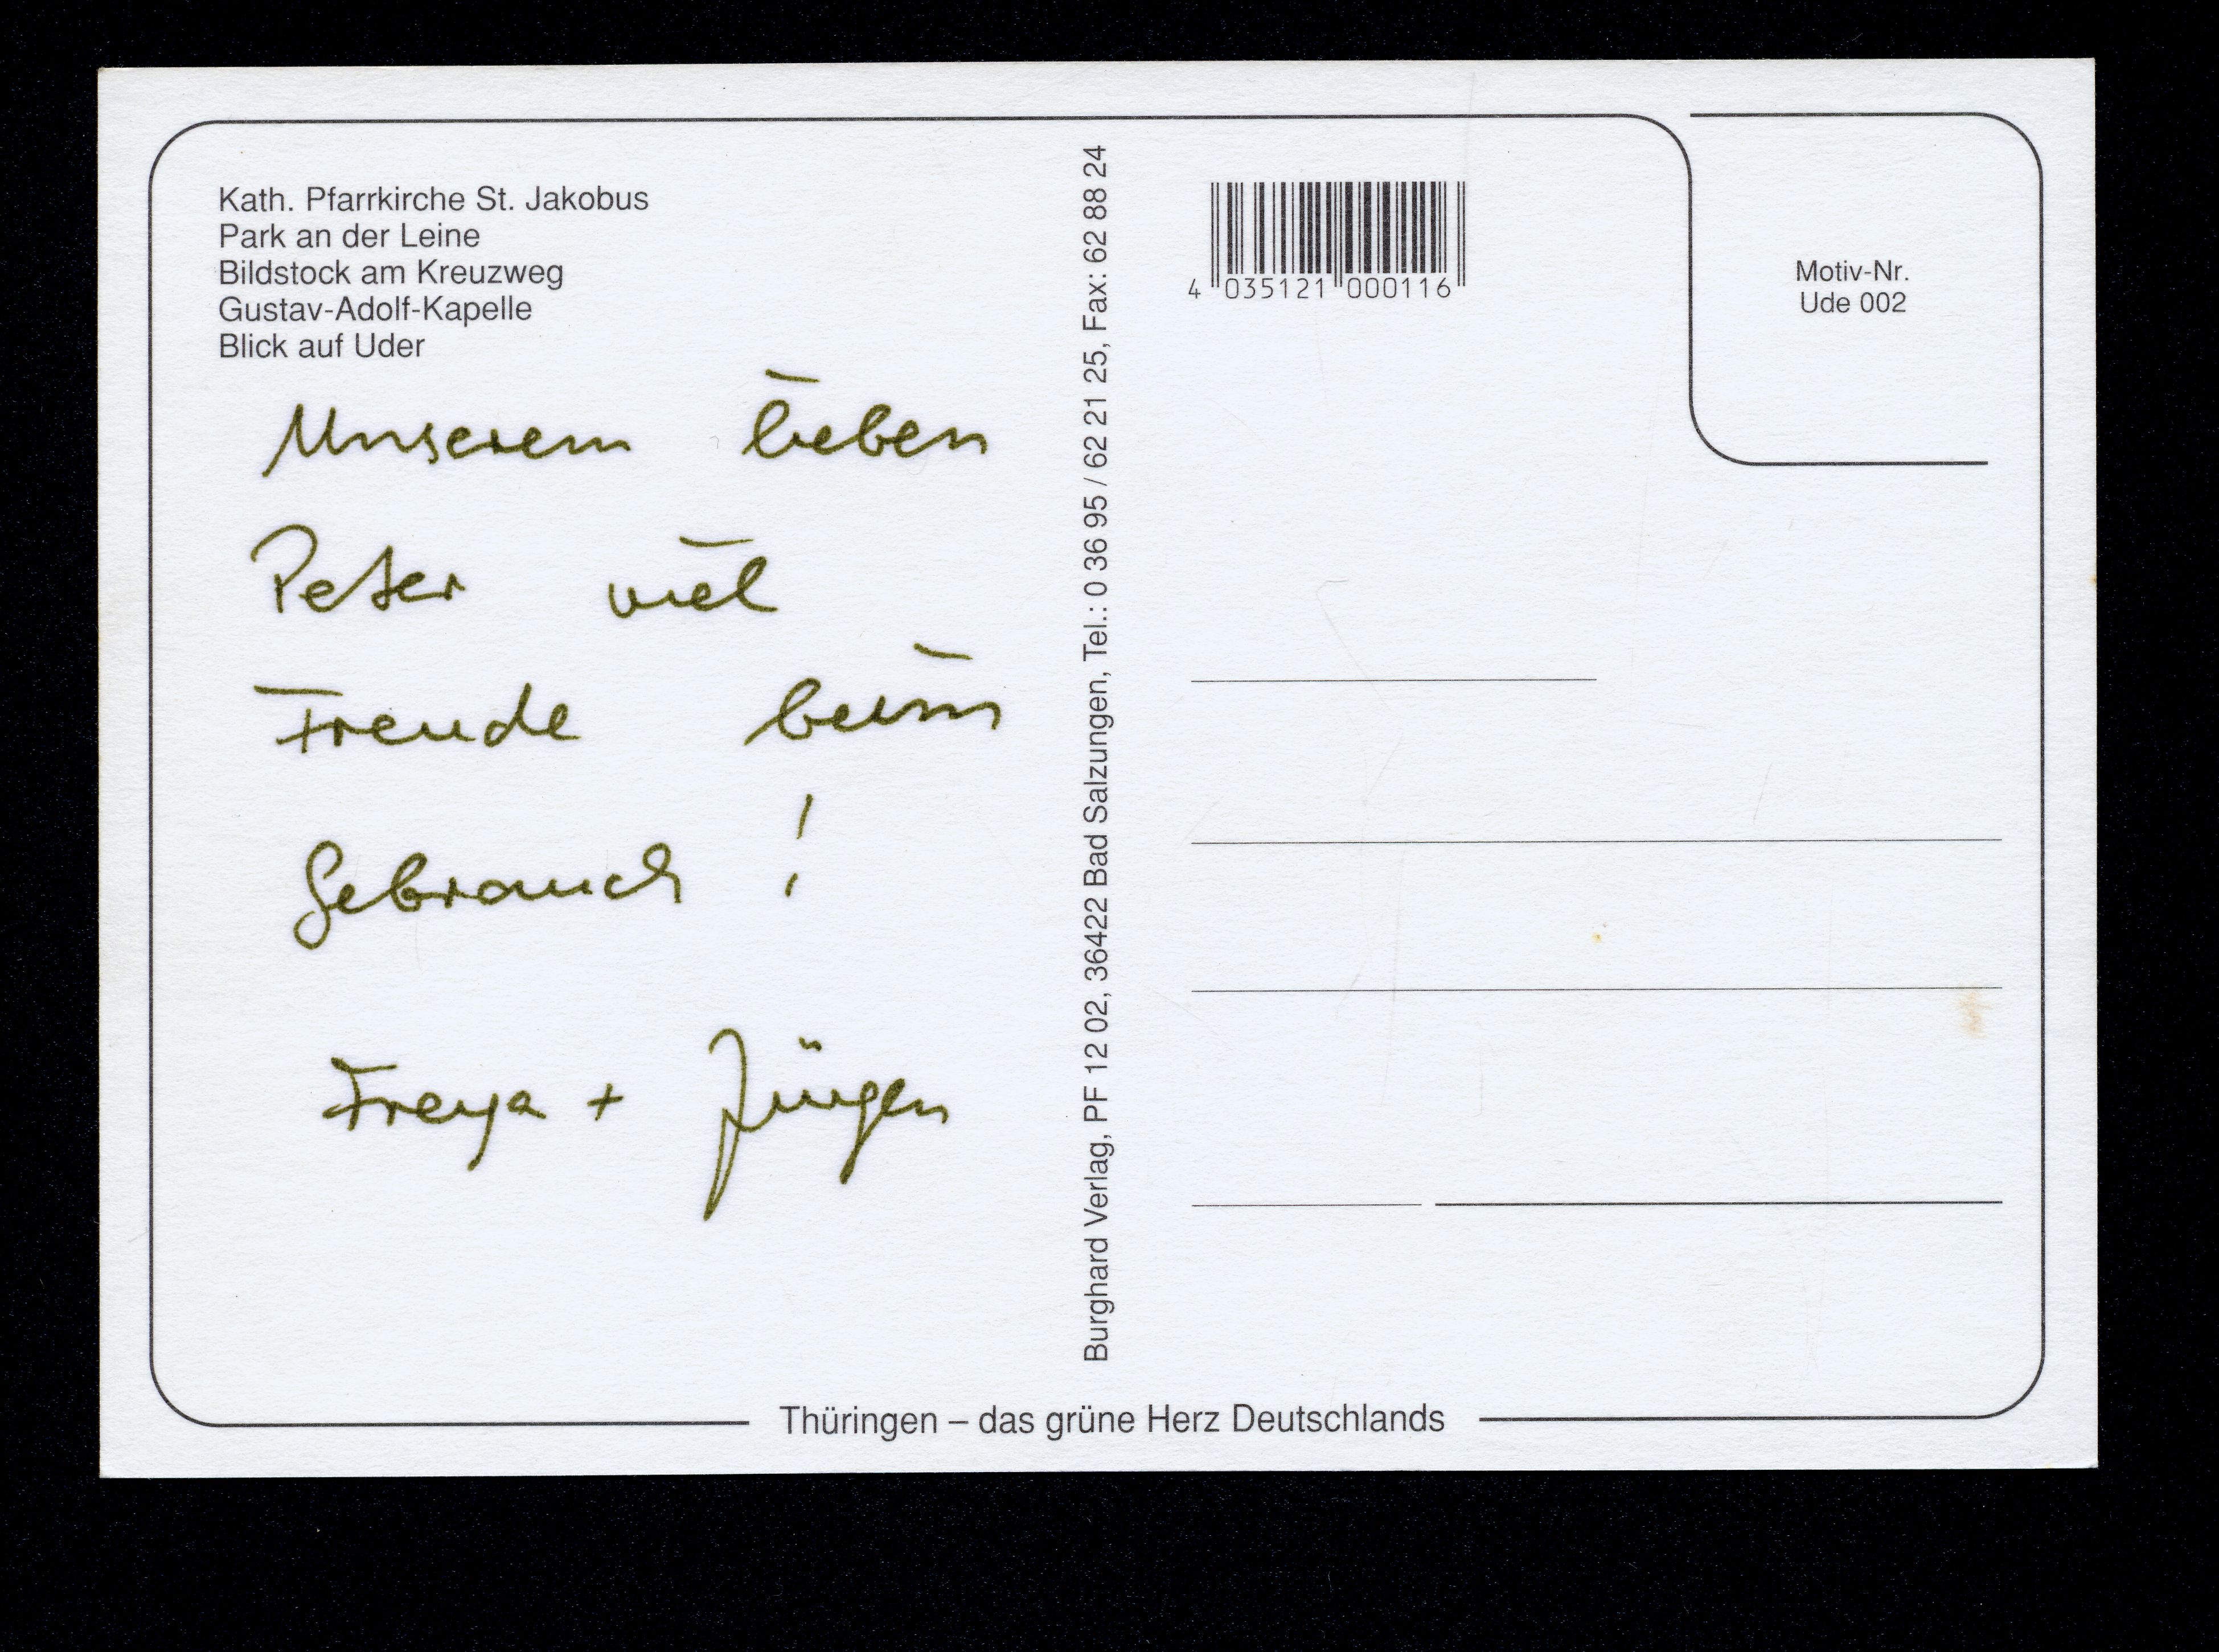 Kath. Pfarrkirche St. Jakobus
Park an der Leine
Bildstock am Kreuzweg
Gustav-Adolf-Kapelle
Blick auf Uder
Unserem lieben
Peter viel
Freude beim
Gebrauch !
Freya + Jürgen
Burghard Verlag, PF 12 02, 36422 Bad Salzungen, Tel.: 0 36 95 / 62 21 25, Fax: 62 88 24
4 035121 000116
Motiv-Nr.
Ude 002
Thüringen – das grüne Herz Deutschlands